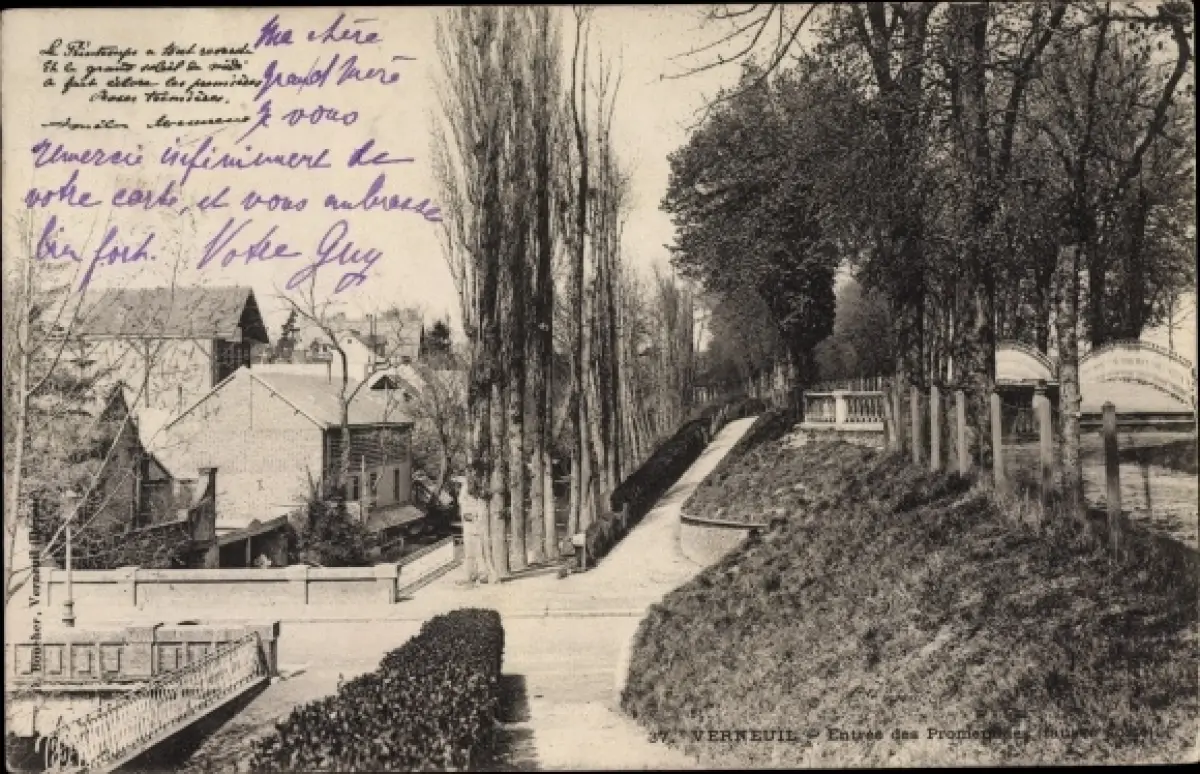 Le Printemps a tout
Et le grand soleil de midi
a fait éclore les premières
Roses trémières.
Ma chère
Grand Mère
Je vous
remercie infiniment de
votre carte, et vous embrasse
bien fort. Votre Guy
Boucher, Verneuil
37. VERNEUIL - Entrée des Promenades